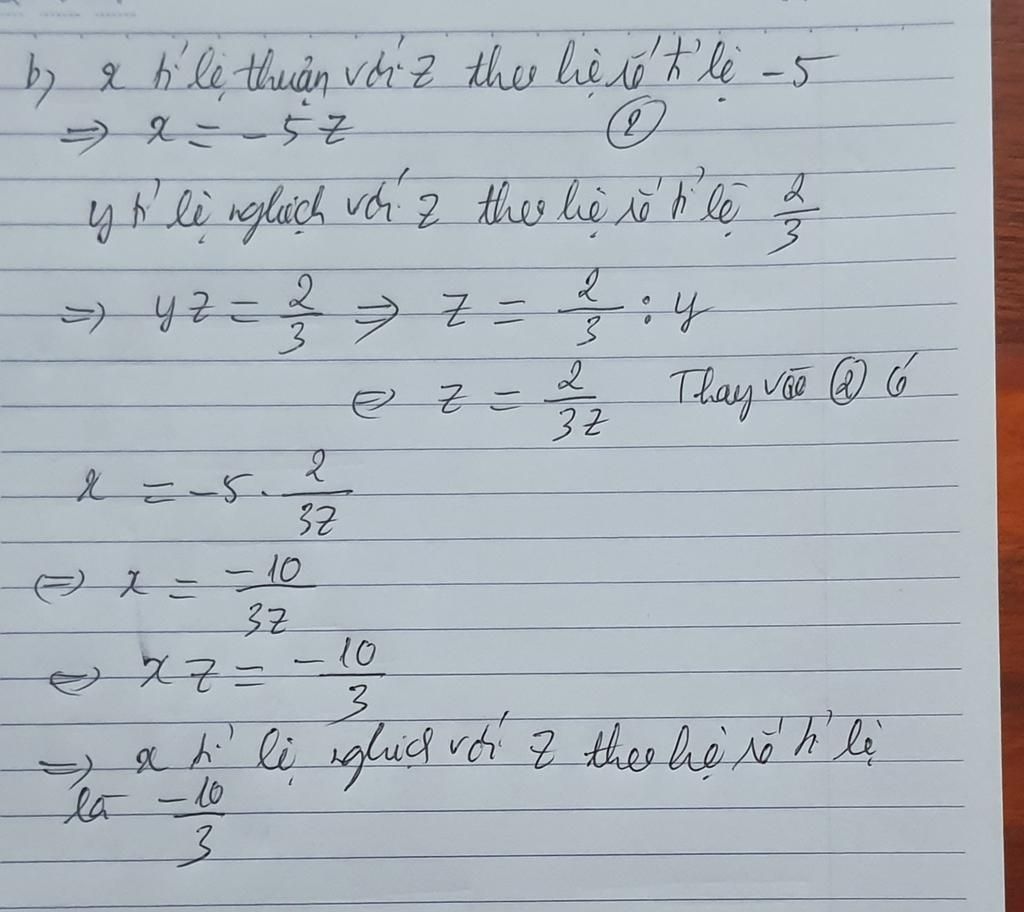 b) x tỉ lệ thuận với z theo hệ số tỉ lệ -5
=> x = -5z (2)
y tỉ lệ nghịch với z theo hệ số tỉ lệ 2/3
=> yz = 2/3 => z = 2/3 : y
<=> z = 2/3z Thay vào (2) có
x = -5 . 2/3z
<=> x = -10/3z
<=> xz = -10/3
=> x tỉ lệ nghịch với z theo hệ số tỉ lệ
là -10/3